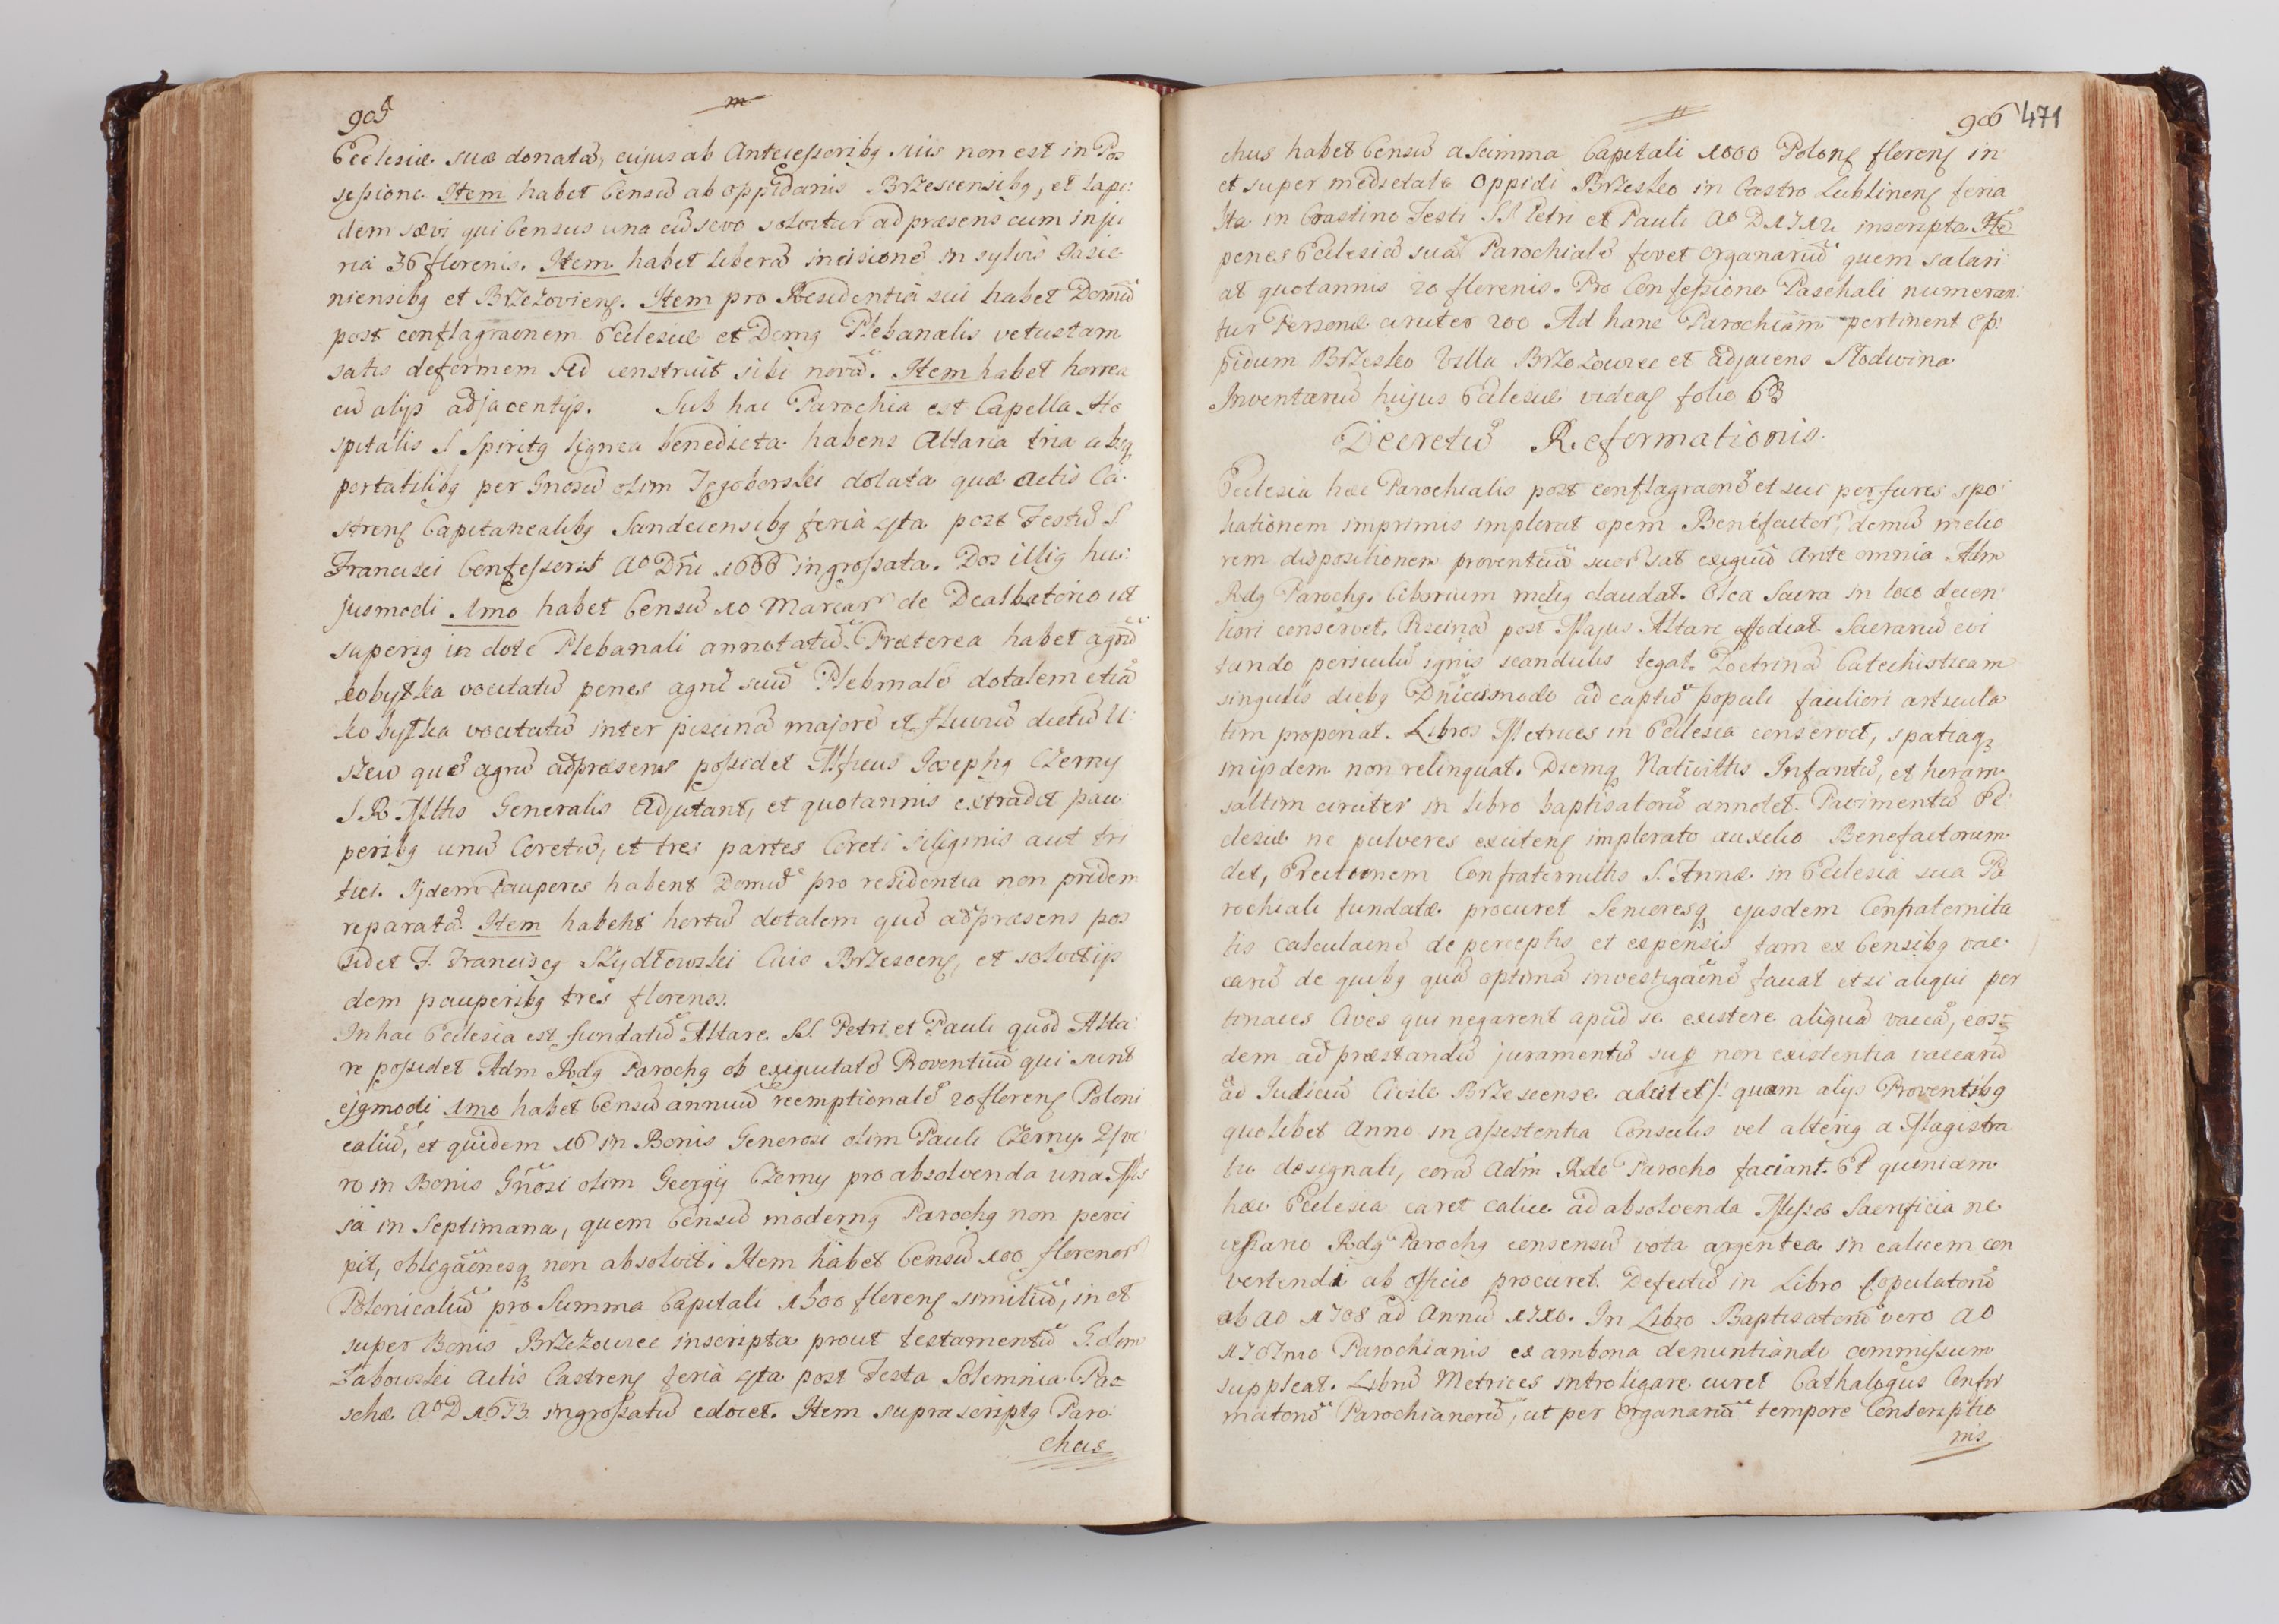 905
m
Ecclesiæ suæ donatam, cujus ab Antecessoribg suis non est in Pos
sessione. Item habet Censum ab oppidanis Brzescensibg, et lapi:
dem sævi qui Census una cum sevo solvitur ad præsens cum inju
ria 36 florenis. Item habet liberam incisionem in sylvis Jasie
niensibg et Brzezoviens. Item pro Residentia sui habet Domum
post conflagraonem Ecclesiæ et Domg Plebanalis vetustam
satis deformem sed construit sibi novam. Item habet horrea
cum alijs adjacentijs. Sub hac Parochia est Capella Ho
spitalis S Spiritg lignea benedicta habens Altaria tria absq
portatilibg per Gnosum olim Jegoborski dotata quæ Actis Ca
strens Capitanealibg Sandecensibg feria 4ta post Festum S.
Francisci Confessoris Ao Dni 1666 ingrossata. Dos illig hu:
jusmodi 1mo habet Censum 10 Marcar de Dealbatorio ut
superig in dote Plebanali annotatum. Præterea habet agrum
kobyłka vocitatum penes agrum suum Plebanalem dotalem etiam
kobyłka vocitatum inter piscinam majorem et fluvium dictum U:
szew quem agrum adpræsens possidet Mficus Josephg Czerny
S R Mttis Generalis Adjutant, et quotannis extradet pau
peribg unum Coretum, et tres partes Coreti siliginis aut tri
tici. Ijdem Pauperes habent Domum pro residentia non pridem
reparatam. Item habent hortum dotalem quem adpræsens pos
sidet F. Franciscg Szydłowski Civis Brzescens, et solvit ijs
dem pauperibg tres florenos.
In hac Ecclesia est fundatum Altare SS. Petri et Pauli quod Alta
re possidet Adm Rdg Parochg ob exiguitatem Proventuum qui sunt
ejgmodi 1mo habet Censum annuum reemptionalem 20 florens Poloni
calium, et quidem 16 in Bonis Generosi olim Pauli Czerny. 4 ve
ro in Bonis Gnosi olim Georgij Czerny pro absolvenda una Mis
sa in Septimana, quem Censum moderng Parochg non perci
pit, obligaonesq non absolvit. Item habet Censum 100 florenor
Polonicalium pro Summa Capitali 1500 florens similium, in et
super Bonis Brzezowiec inscripta prout testamentum G. olim
Zabowski Actis Castrens feria 4ta post Festa Solemnia Pas
schæ Ao D 1673. ingrossatum edocet. Item suprascriptg Paro
chus
906 471
chus habet Censum a Summa Capitali 1000 Polons florens in
et super medietate Oppidi Brzesko in Castro Lublinens feria
ta in Crastino Festi SS Petri et Pauli Ao D 1712 inscripta. Item
penes Ecclesiam suam Parochialem fovet Organarium quem salari
at quotannis 20 florenis. Pro Confessione Paschali numeran:
tur Personæ circiter 200 Ad hanc Parochiam pertinent Op:
pidum Brzesko Villa Brzozowiec et adjacens Słodwina
Inventarium hujus Ecclesiæ videas folio 63
Decretum Reformationis.
Ecclesia hæc Parochialis post conflagraonem et sui per fures spo
liationem imprimis implorat opem Benefactor, demum melio
rem dispositionem proventuum suor sat exiguum Ante omnia Adm
Rdg Parochg. Ciborium melig claudat. Olea Sacra in loco decen
tiori conservet. Piscinam post Majus Altare effodiat Sacrarium evi
tando periculum ignis scandulis tegat. Doctrinam Catechisticam
singulis diebg Dnicis modo ad captum populi faciliori articula
tim proponat. Libros Metrices in Ecclesia conservet, spatiaq
in ijsdem non relinquat. Diemq Nativittis Infantum, et horam
saltim circiter in libro baptisatorum annotet. Pavimentum Ec
clesiæ ne pulveres excitens implorato auxilio Benefactorum
det, Erectionem Confraternittis S. Annæ in Ecclesia sua Pa
rochiali fundatæ procuret Senioresq ejusdem Confraternita
tis calculaonem de perceptis et expensis tam ex Censibg vac
carum de quibg quam optimam investigaonem faciat et si aliqui per
tinaces Cives qui negarent apud se existere aliquam vaccam, eos
dem ad præstandum juramentum sup non existentia vaccarum
ad Judicium Civile Brzescense adcitet /: quam alijs Proventibg
quolibet Anno in assistentia Consulis vel alterig a Magistra
tu designati, coram Adm Rdo Parocho faciant. Et quoniam
hæc Ecclesia caret calice ad absolvenda Missæ Sacrificia ne
cessario Rdg Parochg consensum vota argentea in calicem con
vertendi ab officio procuret. Defectum in Libro Copulatorum
ab Ao 1708 ad Annum 1710. In Libro Baptisatorum vero Ao
1707mo Parochianis ex ambona denuntiando commissum
suppleat. Librum Metrices introligare curet Cathalogus Confir
matorum Parochianorum, ut per Organarium tempore Conscriptio
nis